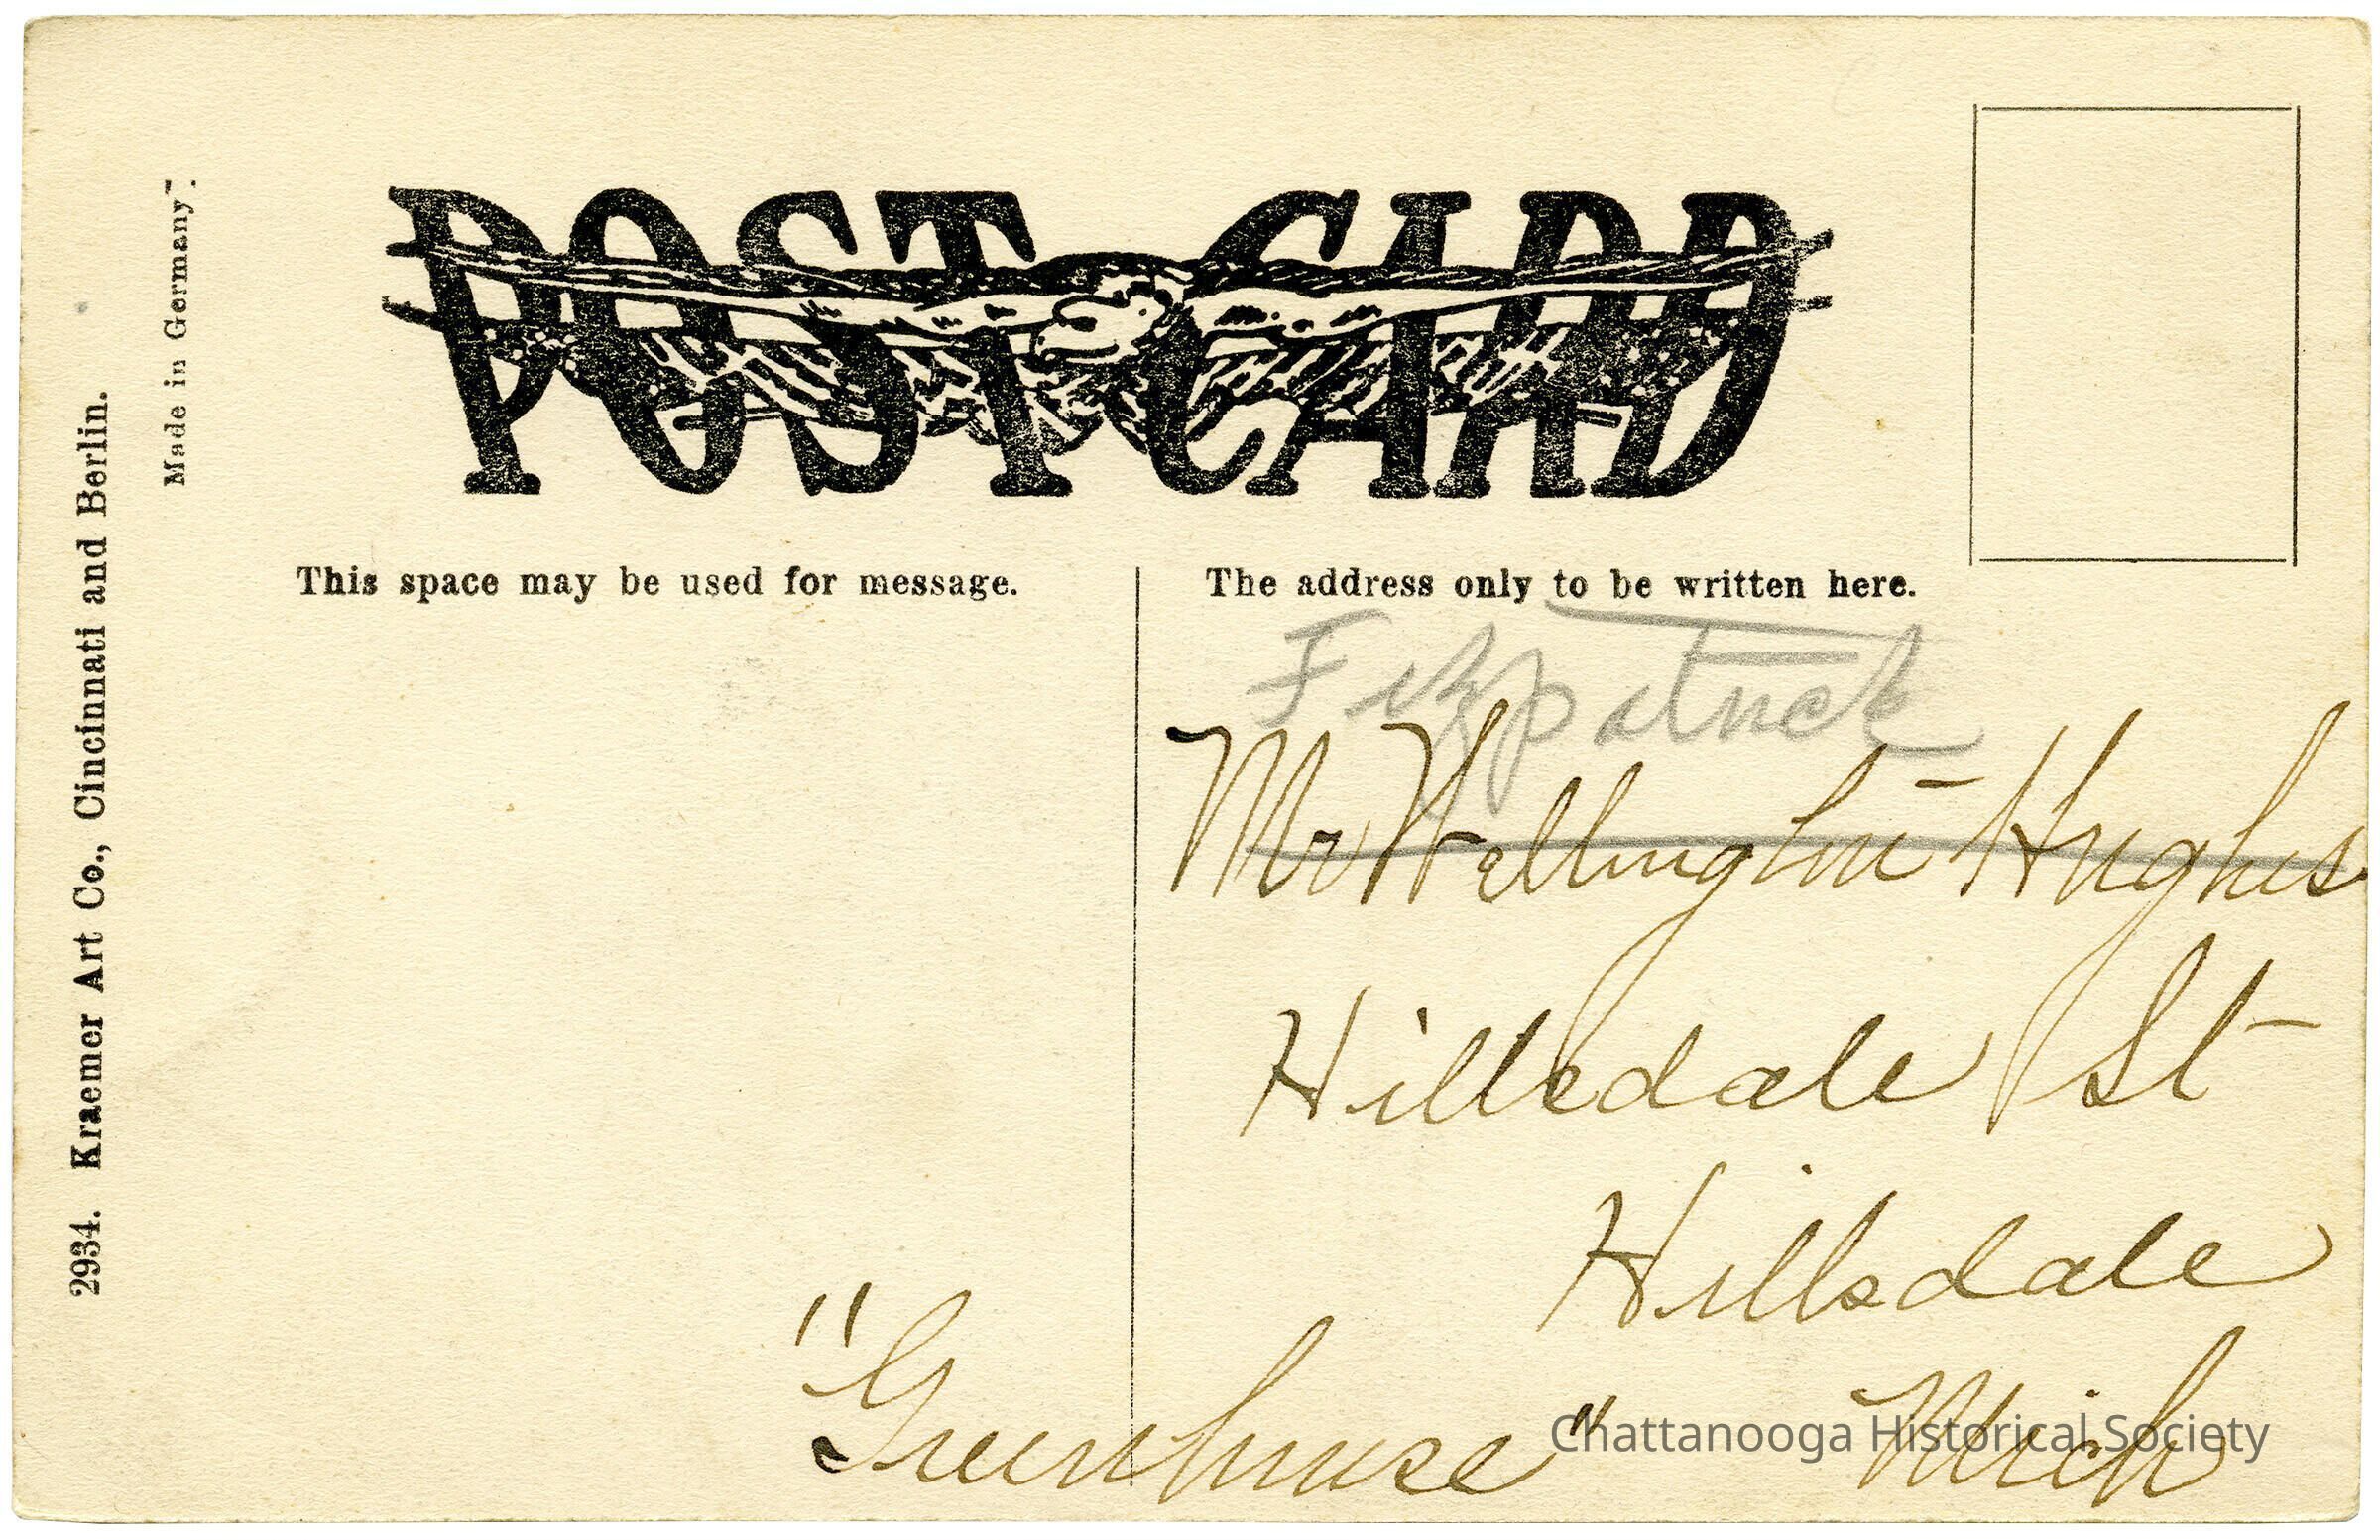 POST CARD
Made in Germany.
2934. Kraemer Art Co., Cincinnati and Berlin.
This space may be used for message.
The address only to be written here.
Fitzpatrick
Mr Wellington Hughes
Hillsdale St
Hillsdale
"Greenhouse" Mich
Chattanooga Historical Society